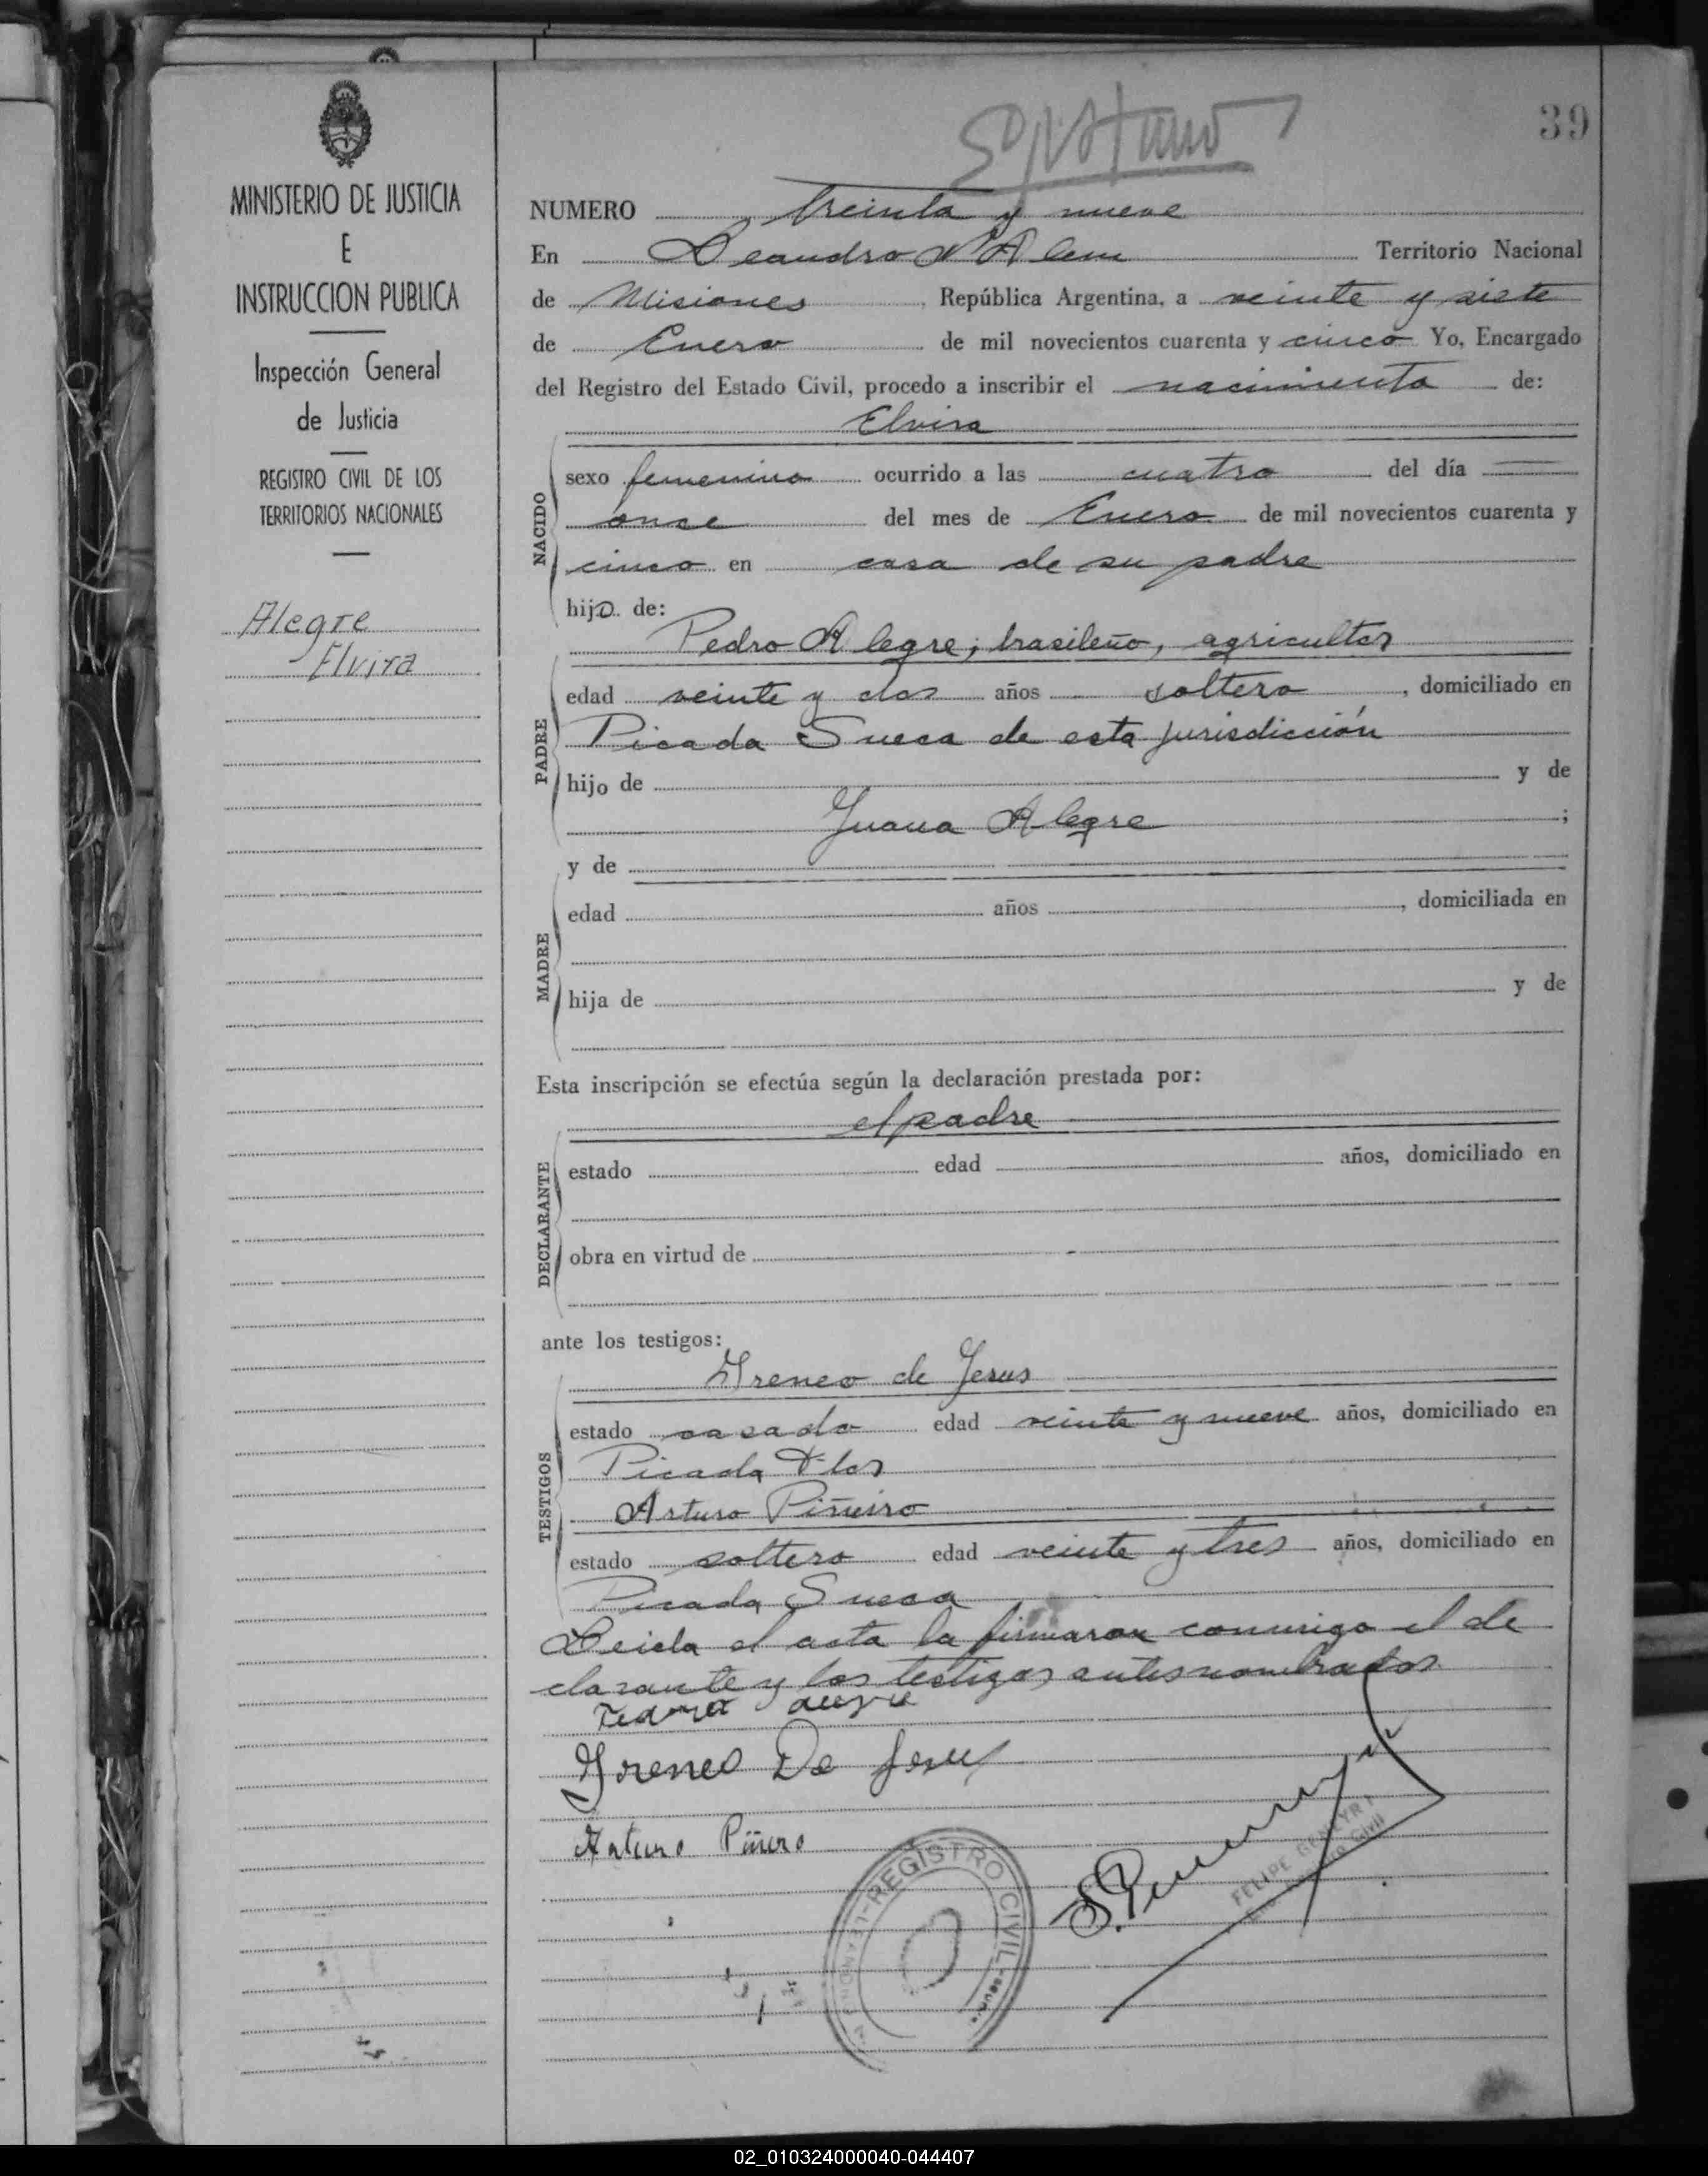 39
NUMERO treinta y nueve
MINISTERIO DE JUSTICIA
E
INSTRUCCION PUBLICA
Inspección General
de Justicia
REGISTRO CIVIL DE LOS
TERRITORIOS NACIONALES
Alegre
Elvira
En Leandro N Alem Territorio Nacional
de Misiones, República Argentina, a veinte y siete
de Enero de mil novecientos cuarenta y cinco Yo, Encargado
del Registro del Estado Civil, procedo a inscribir el nacimiento de:
Elvira
NACIDO
sexo femenino ocurrido a las cuatro del día
once del mes de Enero de mil novecientos cuarenta y
cinco en casa de su padre
hijo de:
Pedro Alegre; brasileño, agricultor
PADRE
edad veinte y dos años soltero, domiciliado en
Picada Sueca de esta jurisdicción
hijo de y de
Juana Alegre ;
y de
MADRE
edad años, domiciliada en
hija de y de
Esta inscripción se efectúa según la declaración prestada por:
el padre
DECLARANTE
estado edad años, domiciliado en
obra en virtud de
ante los testigos:
Ireneo de Jesus
TESTIGOS
estado casado edad veinte y nueve años, domiciliado en
Picada Flor
Arturo Piñeiro
estado soltero edad veinte y tres años, domiciliado en
Picada Sueca
Leida el acta la firmaron conmigo el de
clarante y los testigos antes nombrados
alegre
Ireneo De Jesus
Arturo Piñero
REGISTRO CIVIL
FELIPE
02_010324000040-044407